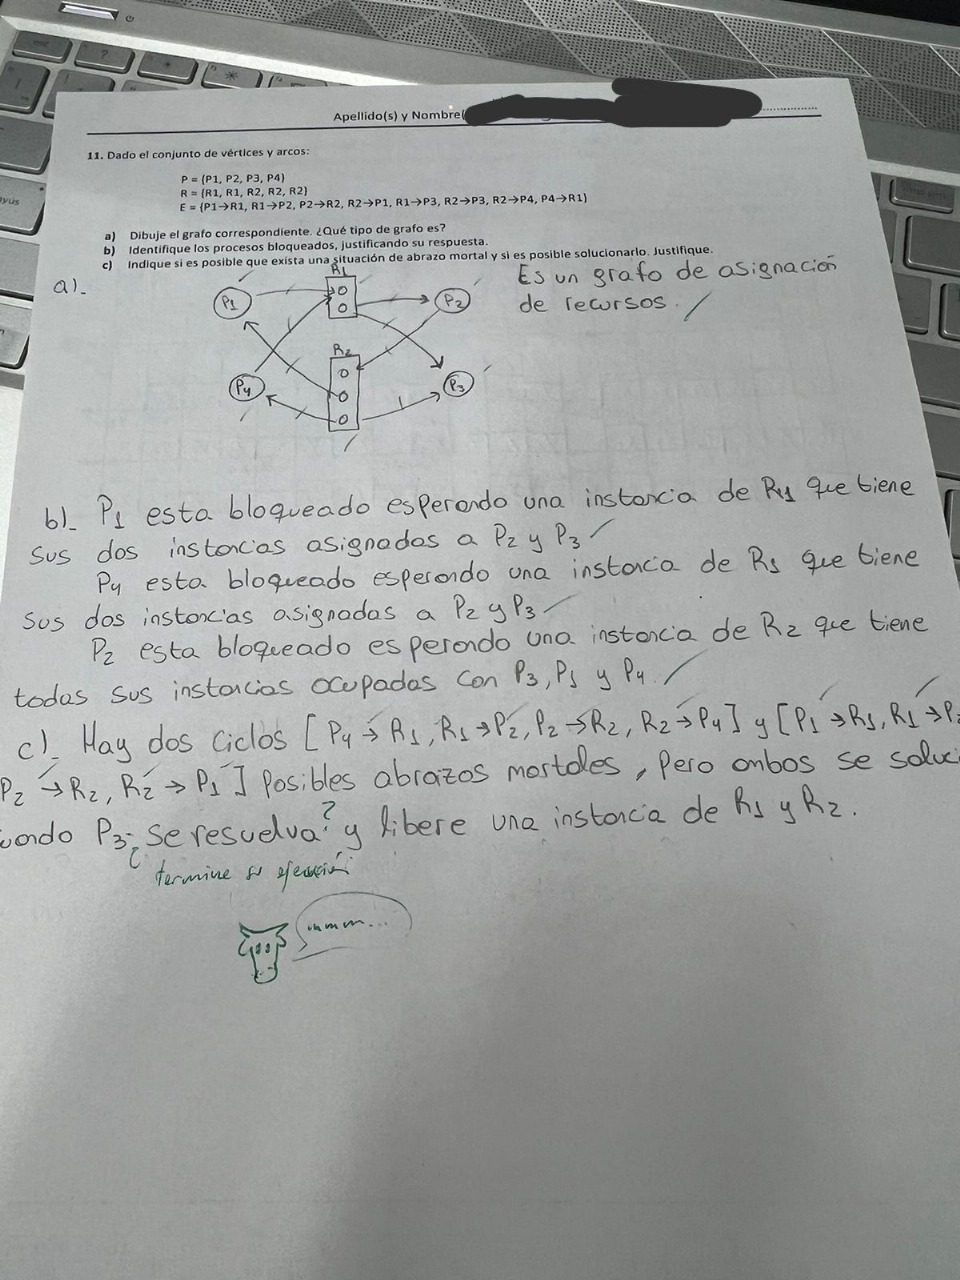 Apellido(s) y Nombre(
11. Dado el conjunto de vértices y arcos:
P = {P1, P2, P3, P4}
R = {R1, R1, R2, R2, R2}
E = {P1→R1, R1→P2, P2→R2, R2→P1, R1→P3, R2→P3, R2→P4, P4→R1}
a) Dibuje el grafo correspondiente. ¿Qué tipo de grafo es?
b) Identifique los procesos bloqueados, justificando su respuesta.
c) Indique si es posible que exista una situación de abrazo mortal y si es posible solucionarlo. Justifique.
a)_
R1
P1
P2
Es un grafo de asignación
de recursos.
R2
P4
P3
b)_ P1 esta bloqueado esperando una instancia de R1 que tiene
sus dos instancias asignadas a P2 y P3
P4 esta bloqueado esperando una instancia de R1 que tiene
sus dos instancias asignadas a P2 y P3
P2 esta bloqueado esperando una instancia de R2 que tiene
todas sus instancias ocupadas con P3, P1 y P4.
c)_ Hay dos ciclos [P4→R1, R1→P2, P2→R2, R2→P4] y [P1→R1, R1→P2
P2→R2, R2→P1] Posibles abrazos mortales, pero ambos se soluci
uando P3 ¿se resuelva? y libere una instancia de R1 y R2.
termine su ejecución
mmm...